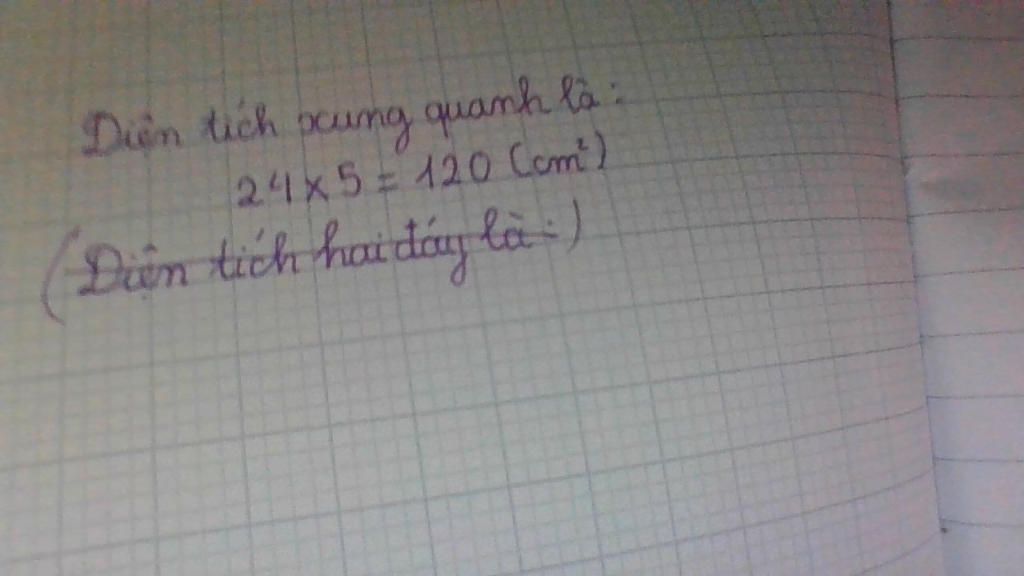 Diện tích xung quanh là:
24 x 5 = 120 (cm²)
(Diện tích hai đáy là:)